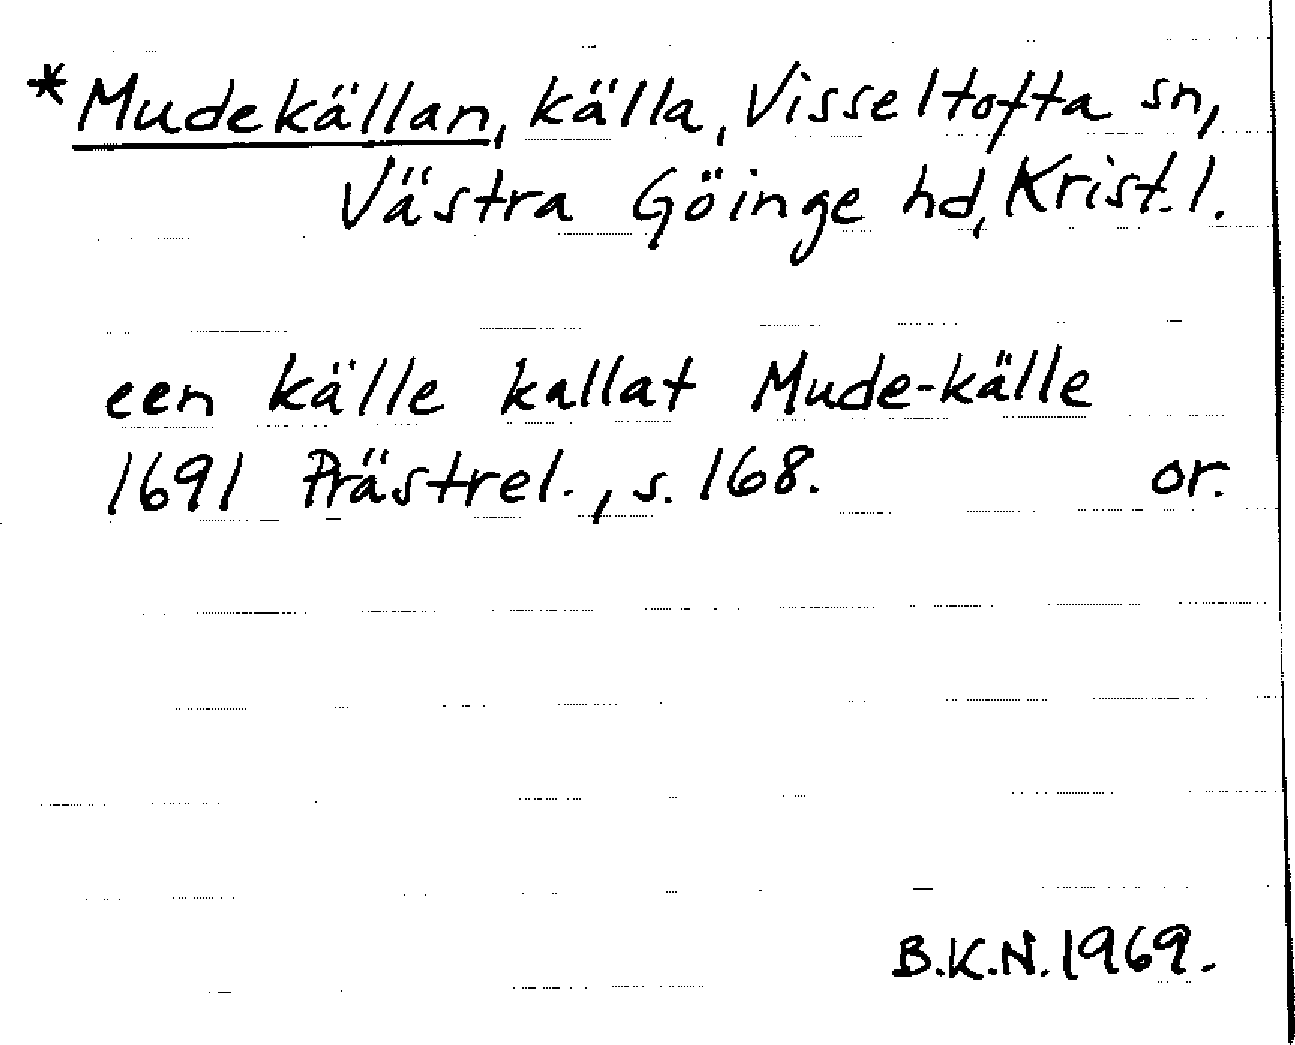 *Mudekällan, källa, Visseltofta sn,
Västra Göinge hd, Krist. l.
een källe kallat Mude-källe
1691 Prästrel., s. 168. or.
B.K.N. 1969.